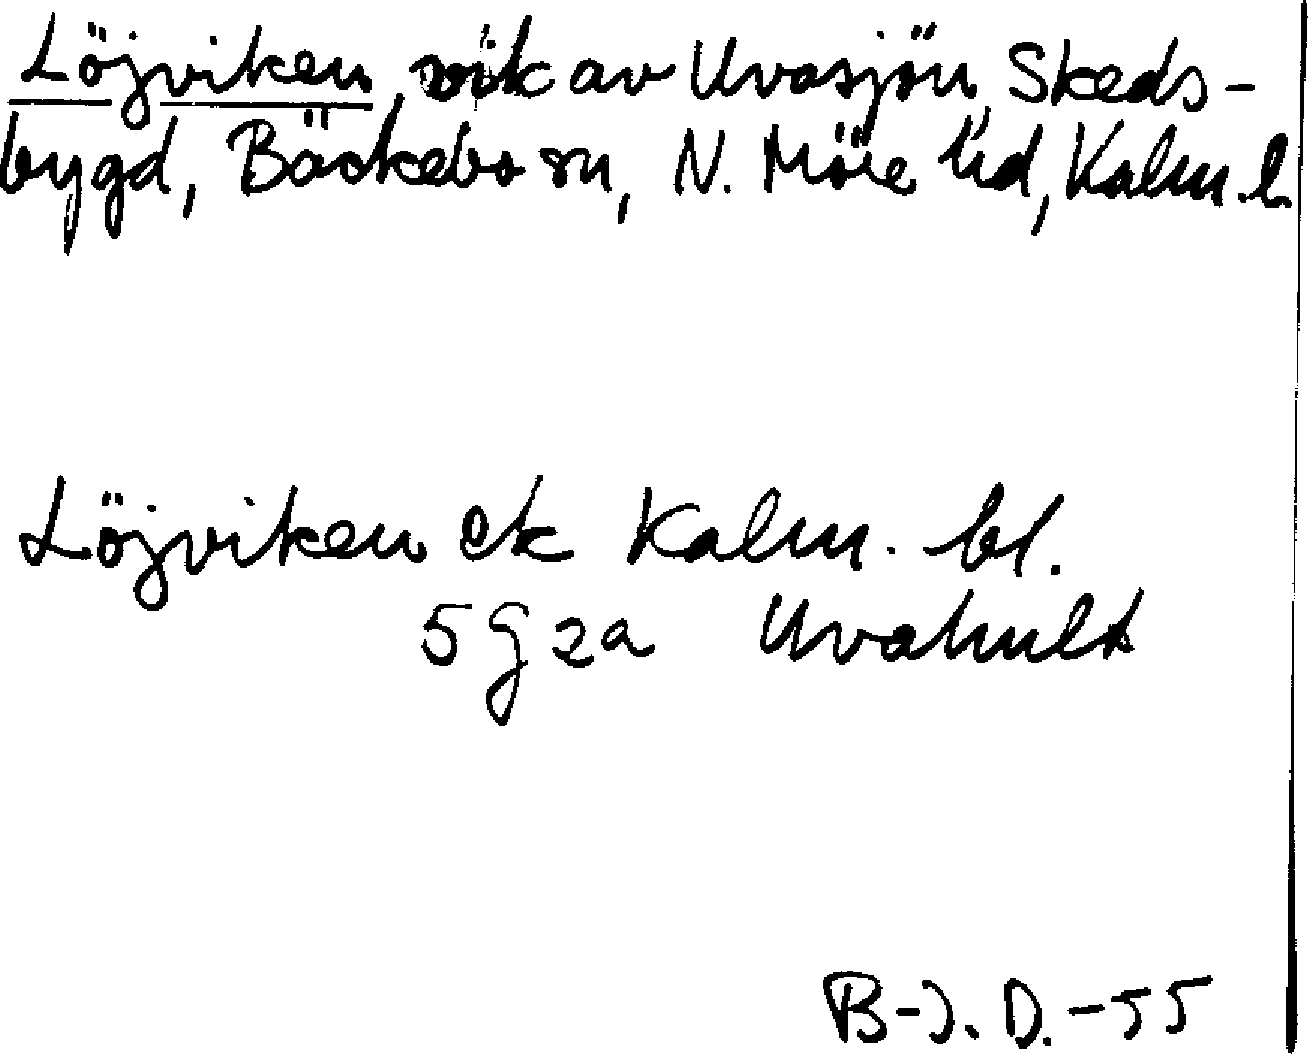 Löjviken, vik av Uvasjön, Skeds-
bygd, Bäckebo sn, N. Möre hd, Kalm. l.
Löjviken ek Kalm. bl.
5 g 2a Uvahult
B-J. D. -55